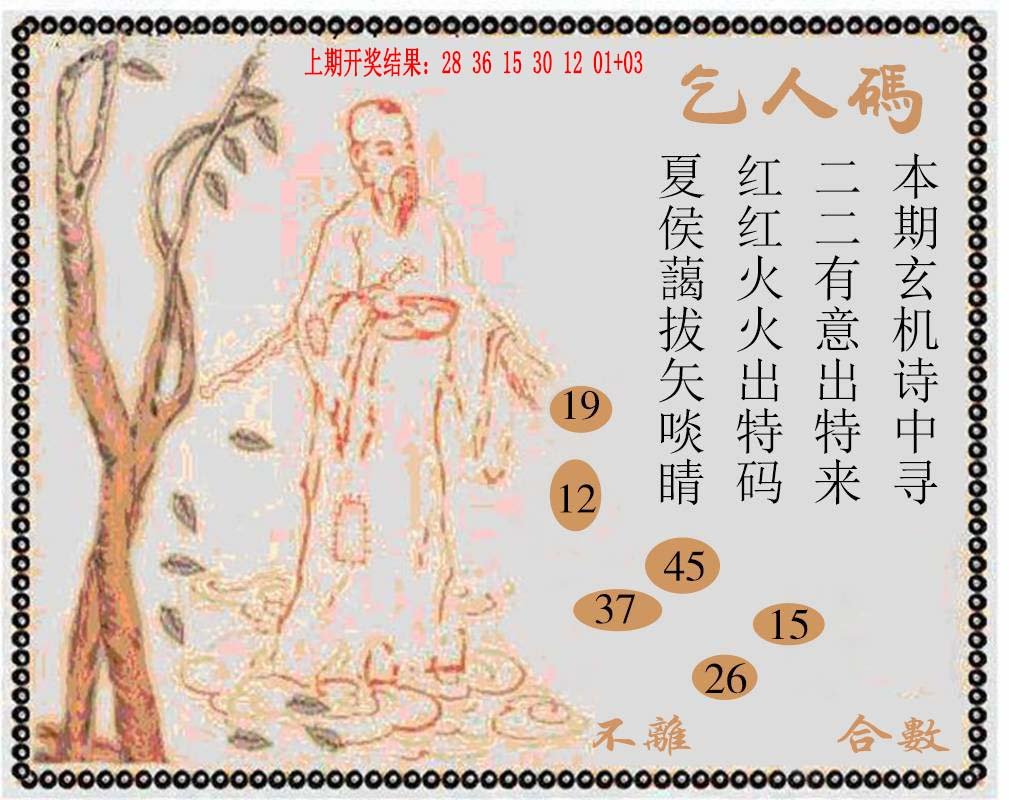 上期开奖结果：28 36 15 30 12 01+03
乞人碼
本期玄机诗中寻
二二有意出特来
红红火火出特码
夏侯藹拔矢啖睛
19
12
45
37
15
26
不離
合數